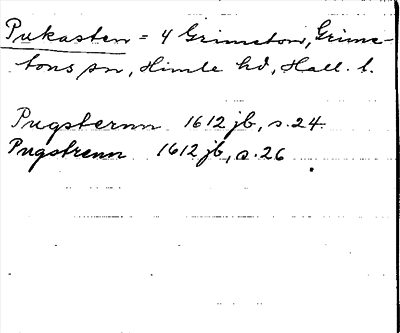 Pukasten = 4 Grimeton, Grime-
tons sn, Himle hd, Hall. l.
Pugsternn 1612 jb, s. 24.
Pugstrenn 1612 jb, s. 26